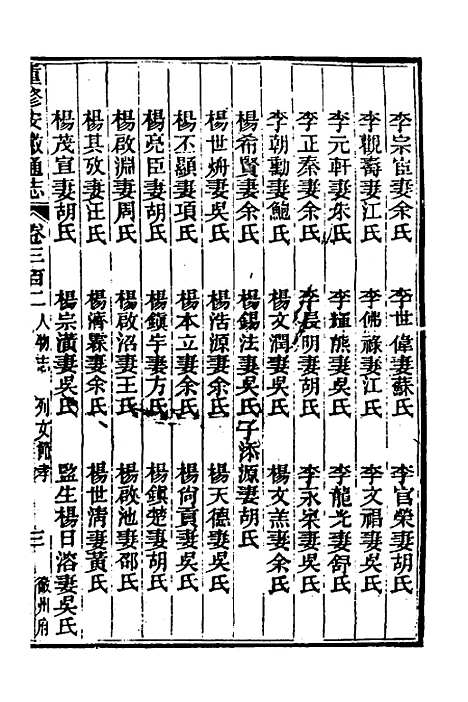 李宗宦妻余氏　李世偉妻蘇氏　李官榮妻胡氏
李觀壽妻江氏　李佛祿妻江氏　李文琩妻吳氏
李元軒妻朱氏　李插熊妻吳氏　李龍光妻舒氏
李正泰妻余氏　李長明妻胡氏　李永寀妻吳氏
李朝勳妻鮑氏　楊文潤妻吳氏　楊文羔妻余氏
楊希賢妻余氏　楊錫法妻吳氏子添源妻胡氏
楊世妻吳氏　楊浩源妻余氏　楊天德妻吳氏
楊不顯妻項氏　楊本立妻余氏　楊尙貢妻吳氏
楊亮臣妻胡氏　楊鎭宇妻方氏　楊鎭楚妻胡氏
楊啟淵妻周氏　楊啟沼妻王氏　楊啟池妻邵氏
楊其攷妻汪氏　楊濟妻余氏　楊世淸妻黃氏
楊茂宣妻胡氏　楊宗潢妻吳氏　監生楊日溶妻吳氏
重修安徽通志　卷三百二　人物志　列女節孝　三　徽州府